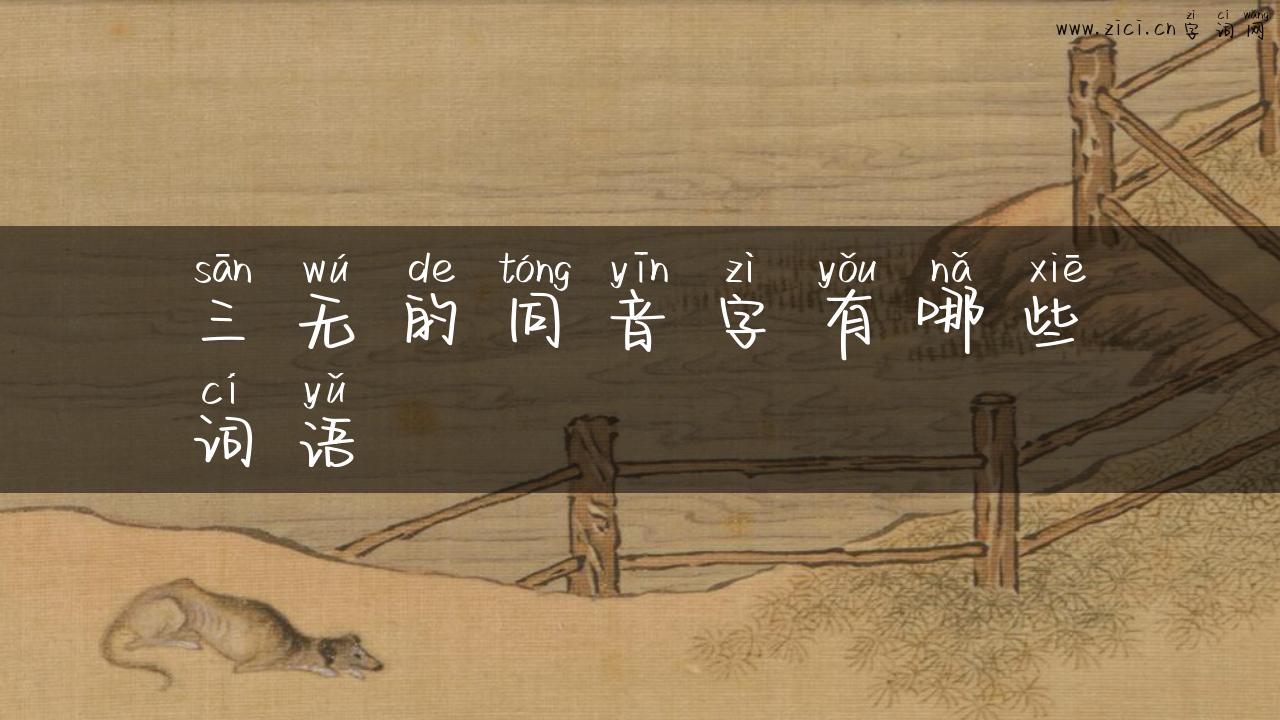 zì cí wǎng
www.zici.cn 字词网
sān wú de tóng yīn zì yǒu nǎ xiē
三无的同音字有哪些
cí yǔ
词语